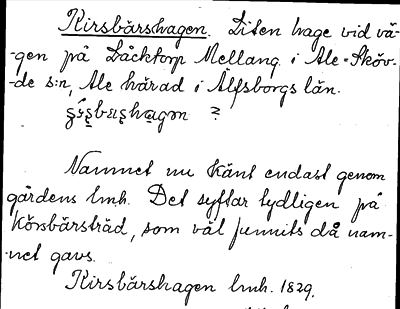 Kirsbärshagen. Liten hage vid vä-
-gen på Låcktorp Mellang. i Ale-Sköv-
-de s:n, Ale härad i Älfsborgs län.
?
Namnet nu känt endast genom
gårdens lmh. Det syftar tydligen på
körsbärsträd, som väl funnits då nam-
-net gavs.
Kirsbärshagen lmh. 1829.